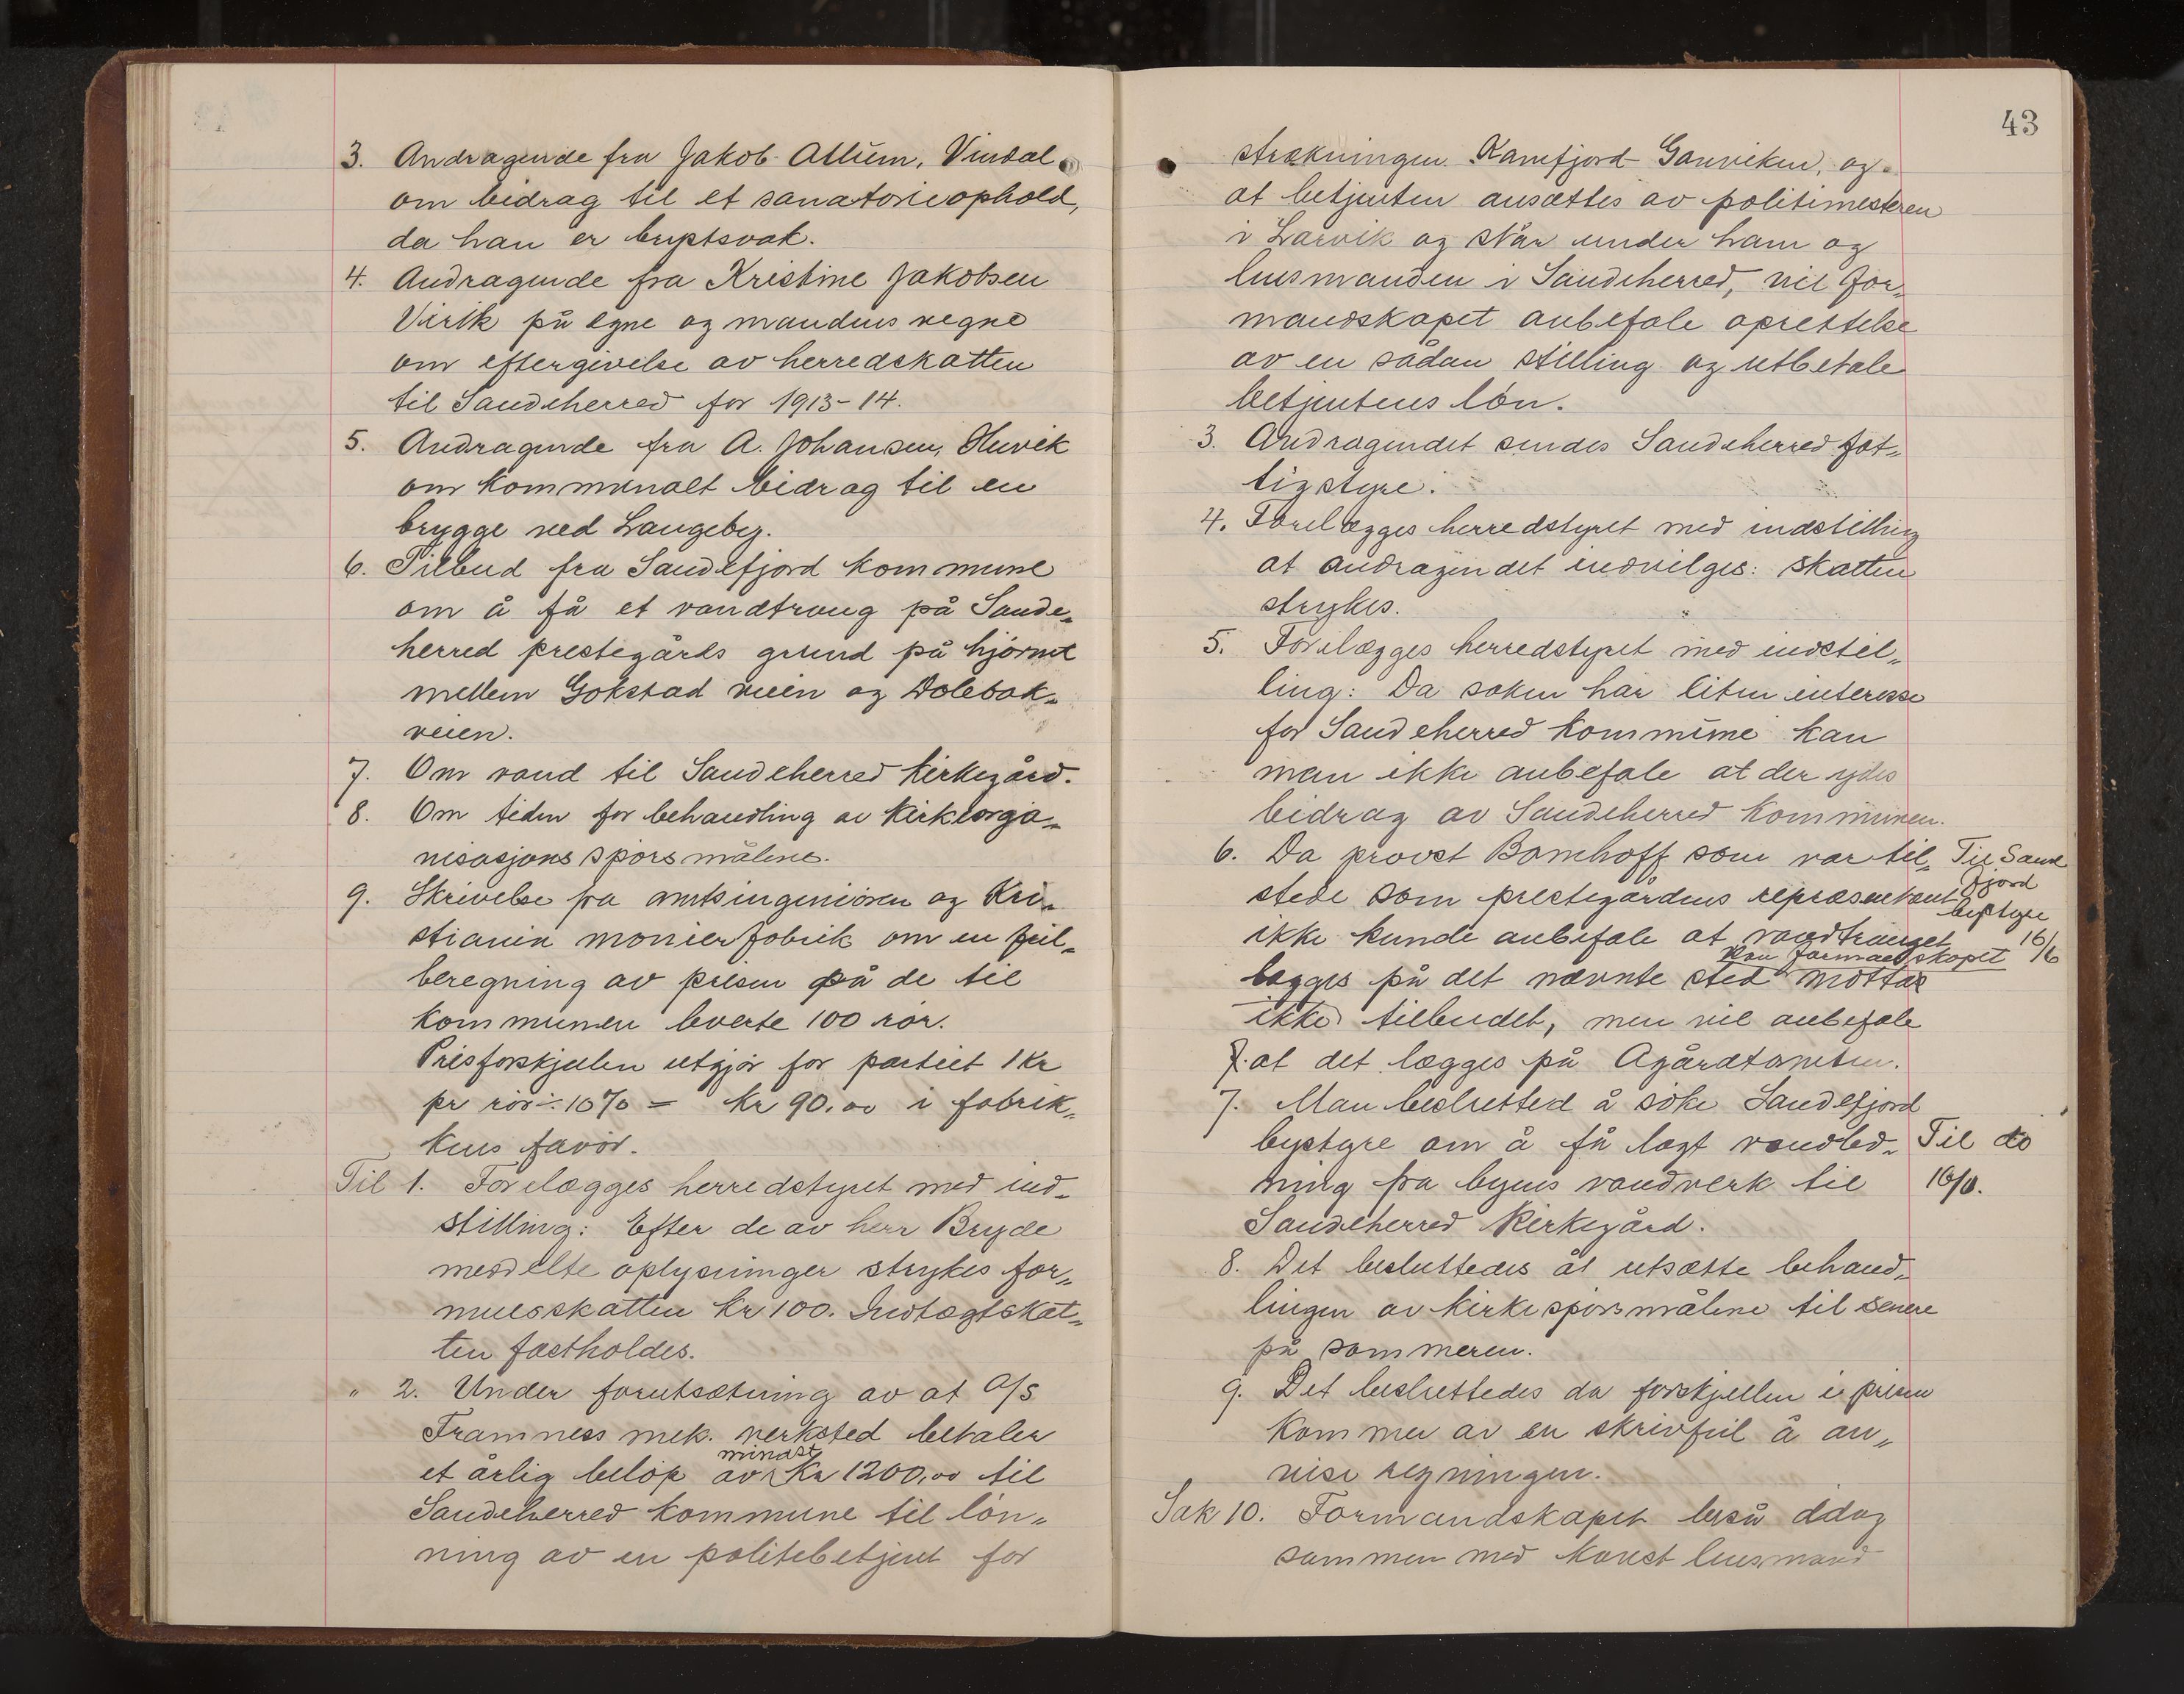 3. Andragende fra Jakob Allum, Vindal
om bidrag til et sanatorieophold,
da han er brystsvak.
4. Andragende fra Kristine Jakobsen
Virik på egne og mandens vegne
om eftergivelse av herredskatten
til Sandeherred for 1913-14.
5. Andragende fra A. Johansen, Huvik
om kommunalt bidrag til en
brygge ved Langeby.
6. Tilbud fra Sandefjord kommune
om å få et vandtraug på Sande„
herred prestegårds grund på hjørnet
mellem Gokstad veien og Dølebak„
veien.
7. Om vand til Sandeherred kirkegård.
8. Om tiden for behandling av kirkeorga„
nisasjons spørsmålene.
9. Skrivelse fra amtsingeniøren og Kri„
stiania monierfabrik om en feil„
beregning av prisen på de til
kommunen leverte 100 rør.
Prisforskjellen utgjør for partiet 1 kr
pr rør ÷ 10% = kr 90.00 i fabrik„
kens favør.
Til 1. Forelægges herredstyret med ind„
stilling: Efter de av herr Bryde
meddelte oplysninger strykes for„
muesskatten kr 100. Indtægtskat„
ten fastholdes.
" 2. Under forutsætning av at A/S
Framnæss mek. verksted betaler
et årlig beløp av mindst kr 1200,00 til
Sandeherred kommune til løn„
ning av en politibetjent for
43
strækningen Kamfjord-Ganviken, og
at betjenten ansættes av politimesteren
i Larvik og står under ham og
lensmanden i Sandeherred, vil for„
mandskapet anbefale oprettelse
av en sådan stilling og utbetale
betjentens løn.
3. Andragendet sendes Sandeherred fat„
tigstyre.
4. Forelægges herredstyret med indstilling
at andragendet indvilges: skatten
strykes.
5. Forelægges herredstyret med indstil„
ling: Da saken har liten interesse
for Sandeherred kommune kan
man ikke anbefale at der ydes
bidrag av Sandeherred kommunen.
6. Da provst Bomhoff som var til„
stede som prestegårdens repræsentant
ikke kunde anbefale at vandtrauget
lægges på det nævnte sted kan formandskapet motta
ikke tilbudet, men vil anbefale
at det lægges på Agårdtomten.
Til Sande
fjord
bystyre
16/6
7. Man besluttet å søke Sandefjord
bystyre om å få lagt vandled„
ning fra byens vandverk til
Sandeherred kirkegård.
Til do
16/6.
8. Det besluttedes at utsætte behand„
lingen av kirkespørsmålene til senere
på sommeren.
9. Det besluttedes da forskjellen i prisen
kommer av en skrivfeil å an„
vise regningen.
Sak 10. Formandskapet beså idag
sammen med konst lensmand